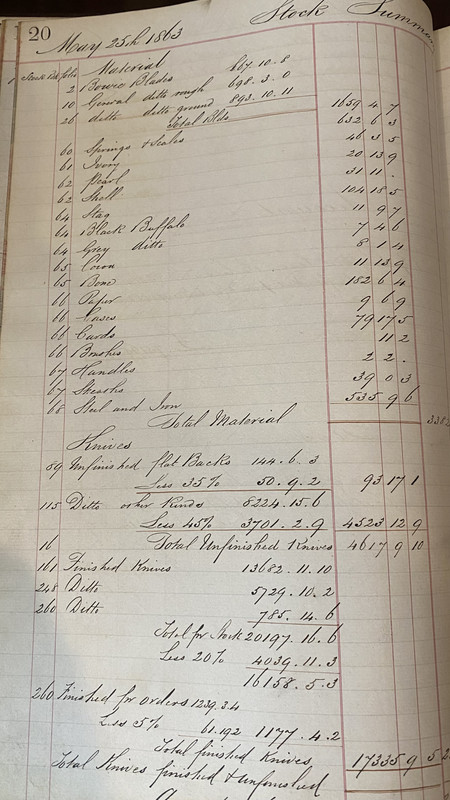 20 May 25th 1863 Stock Summar
Stock Bk folio Material
2 Bowie Blades 667.10.8
10 General ditto rough 698.3.0
26 ditto ditto ground 893.10.11
Total Blds 1659 4 7
60 Springs & Scales 632 6 3
61 Ivory 46 3 5
62 Pearl 20 13 9
62 Shell 31 11 .
64 Stag 104 18 5
64 Black Buffalo 11 9 7
64 Grey ditto 7 4 6
65 Cocoa 8 1 4
65 Bone 11 13 9
66 Paper 182 6 4
66 Cases 9 6 9
66 Cards 79 17 5
66 Brushes 11 2
67 Handles 2 2 .
67 Sheaths 39 0 3
68 Steel and Iron 535 9 6
Total Material 338
Knives
89 Unfinished flat Backs 144.6.3
Less 35% 50.9.2 93 17 1
115 Ditto other Kinds 8224.15.6
Less 45% 3701.2.9 4523 12 9
16 Total Unfinished Knives 4617 9 10
161 Finished Knives 13682.11.10
248 Ditto 5729.10.2
260 Ditto 785.14.6
Total for Stock 20197.16.6
Less 20% 4039.11.3
16158.5.3
260 Finished for orders 1239.3.4
Less 5% 61.19.2 1177.4.2
Total finished Knives 17335 9 5
Total Knives finished & unfinished